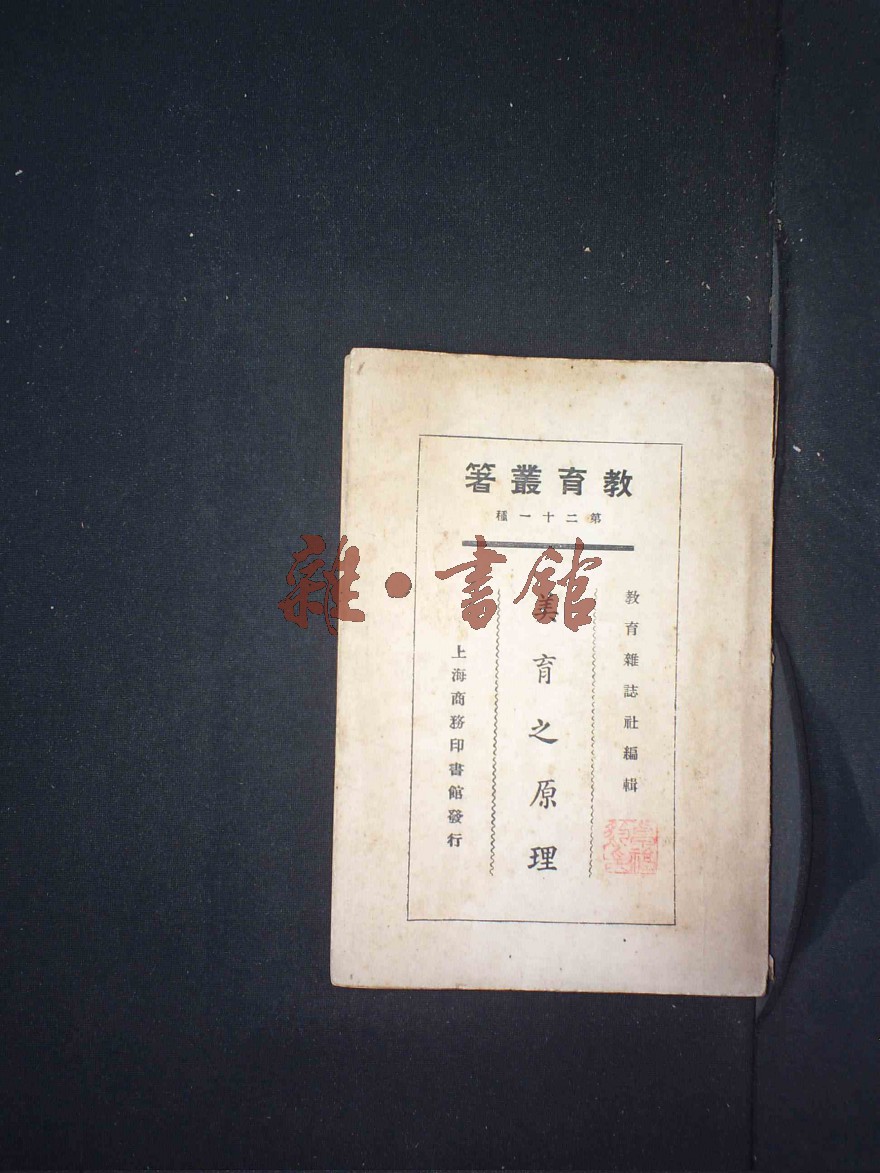 教育叢箸
第二十一種
教育雜誌社編輯
美育之原理
上海商務印書館發行
雜·書館